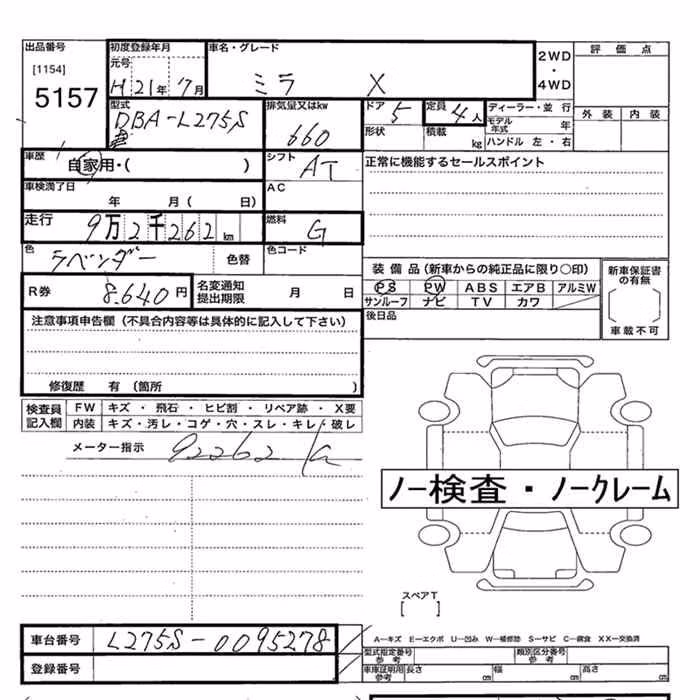 出品番号 初度登録年月 車名・グレード 評価点
[1154] 元号 2WD
5157 H 21年 7月 ミラ X ・ 4WD
型式 排気量又はkw ドア 定員 ディーラー・並行 外装 内装
DBA-L275S 660 5 4人 モデル年式 年
形状 積載 kg ハンドル 左・右
車歴 自家用・( ) シフト AT 正常に機能するセールスポイント
車検満了日 年 月( 日) AC
走行 9万2千262km 燃料 G
色 ラベンダー 色替 色コード
装備品(新車からの純正品に限り○印) 新車保証書の有無
R券 8.640円 名変通知提出期限 月 日 PS PW ABS エアB アルミW
サンルーフ ナビ TV カワ
注意事項申告欄(不具合内容等は具体的に記入して下さい) 後日品 車載不可
修復歴 有 (箇所 )
検査員記入欄 FW キズ・飛石・ヒビ割・リペア跡・X要
内装 キズ・汚レ・コゲ・穴・スレ・キレ・破レ
メーター指示 92262
ノー検査・ノークレーム
スペアT
[ ]
車台番号 L275S-0095278 A―キズ E―エクボ U―凹み W―補修跡 S―サビ C―腐食 XX―交換済
登録番号 型式指定番号 参考 類別区分番号 参考
車庫証明用 参考 長さ cm 幅 cm 高さ cm